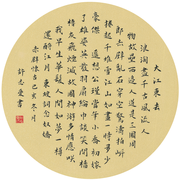 大江東去
浪淘盡千古風流人
物故壘西邊人道是三國周
郎赤壁亂石穿空驚濤拍岸
捲起千堆雪江山如畫一時多少
豪傑遥想公瑾當年小喬初嫁
了雄姿英發羽扇綸巾談笑間檣
櫓灰飛煙滅故國神遊多情應笑
我早生華髮人間如夢一樽
還酹江月 東坡詞念奴嬌
赤壁懷古 己亥冬月
書